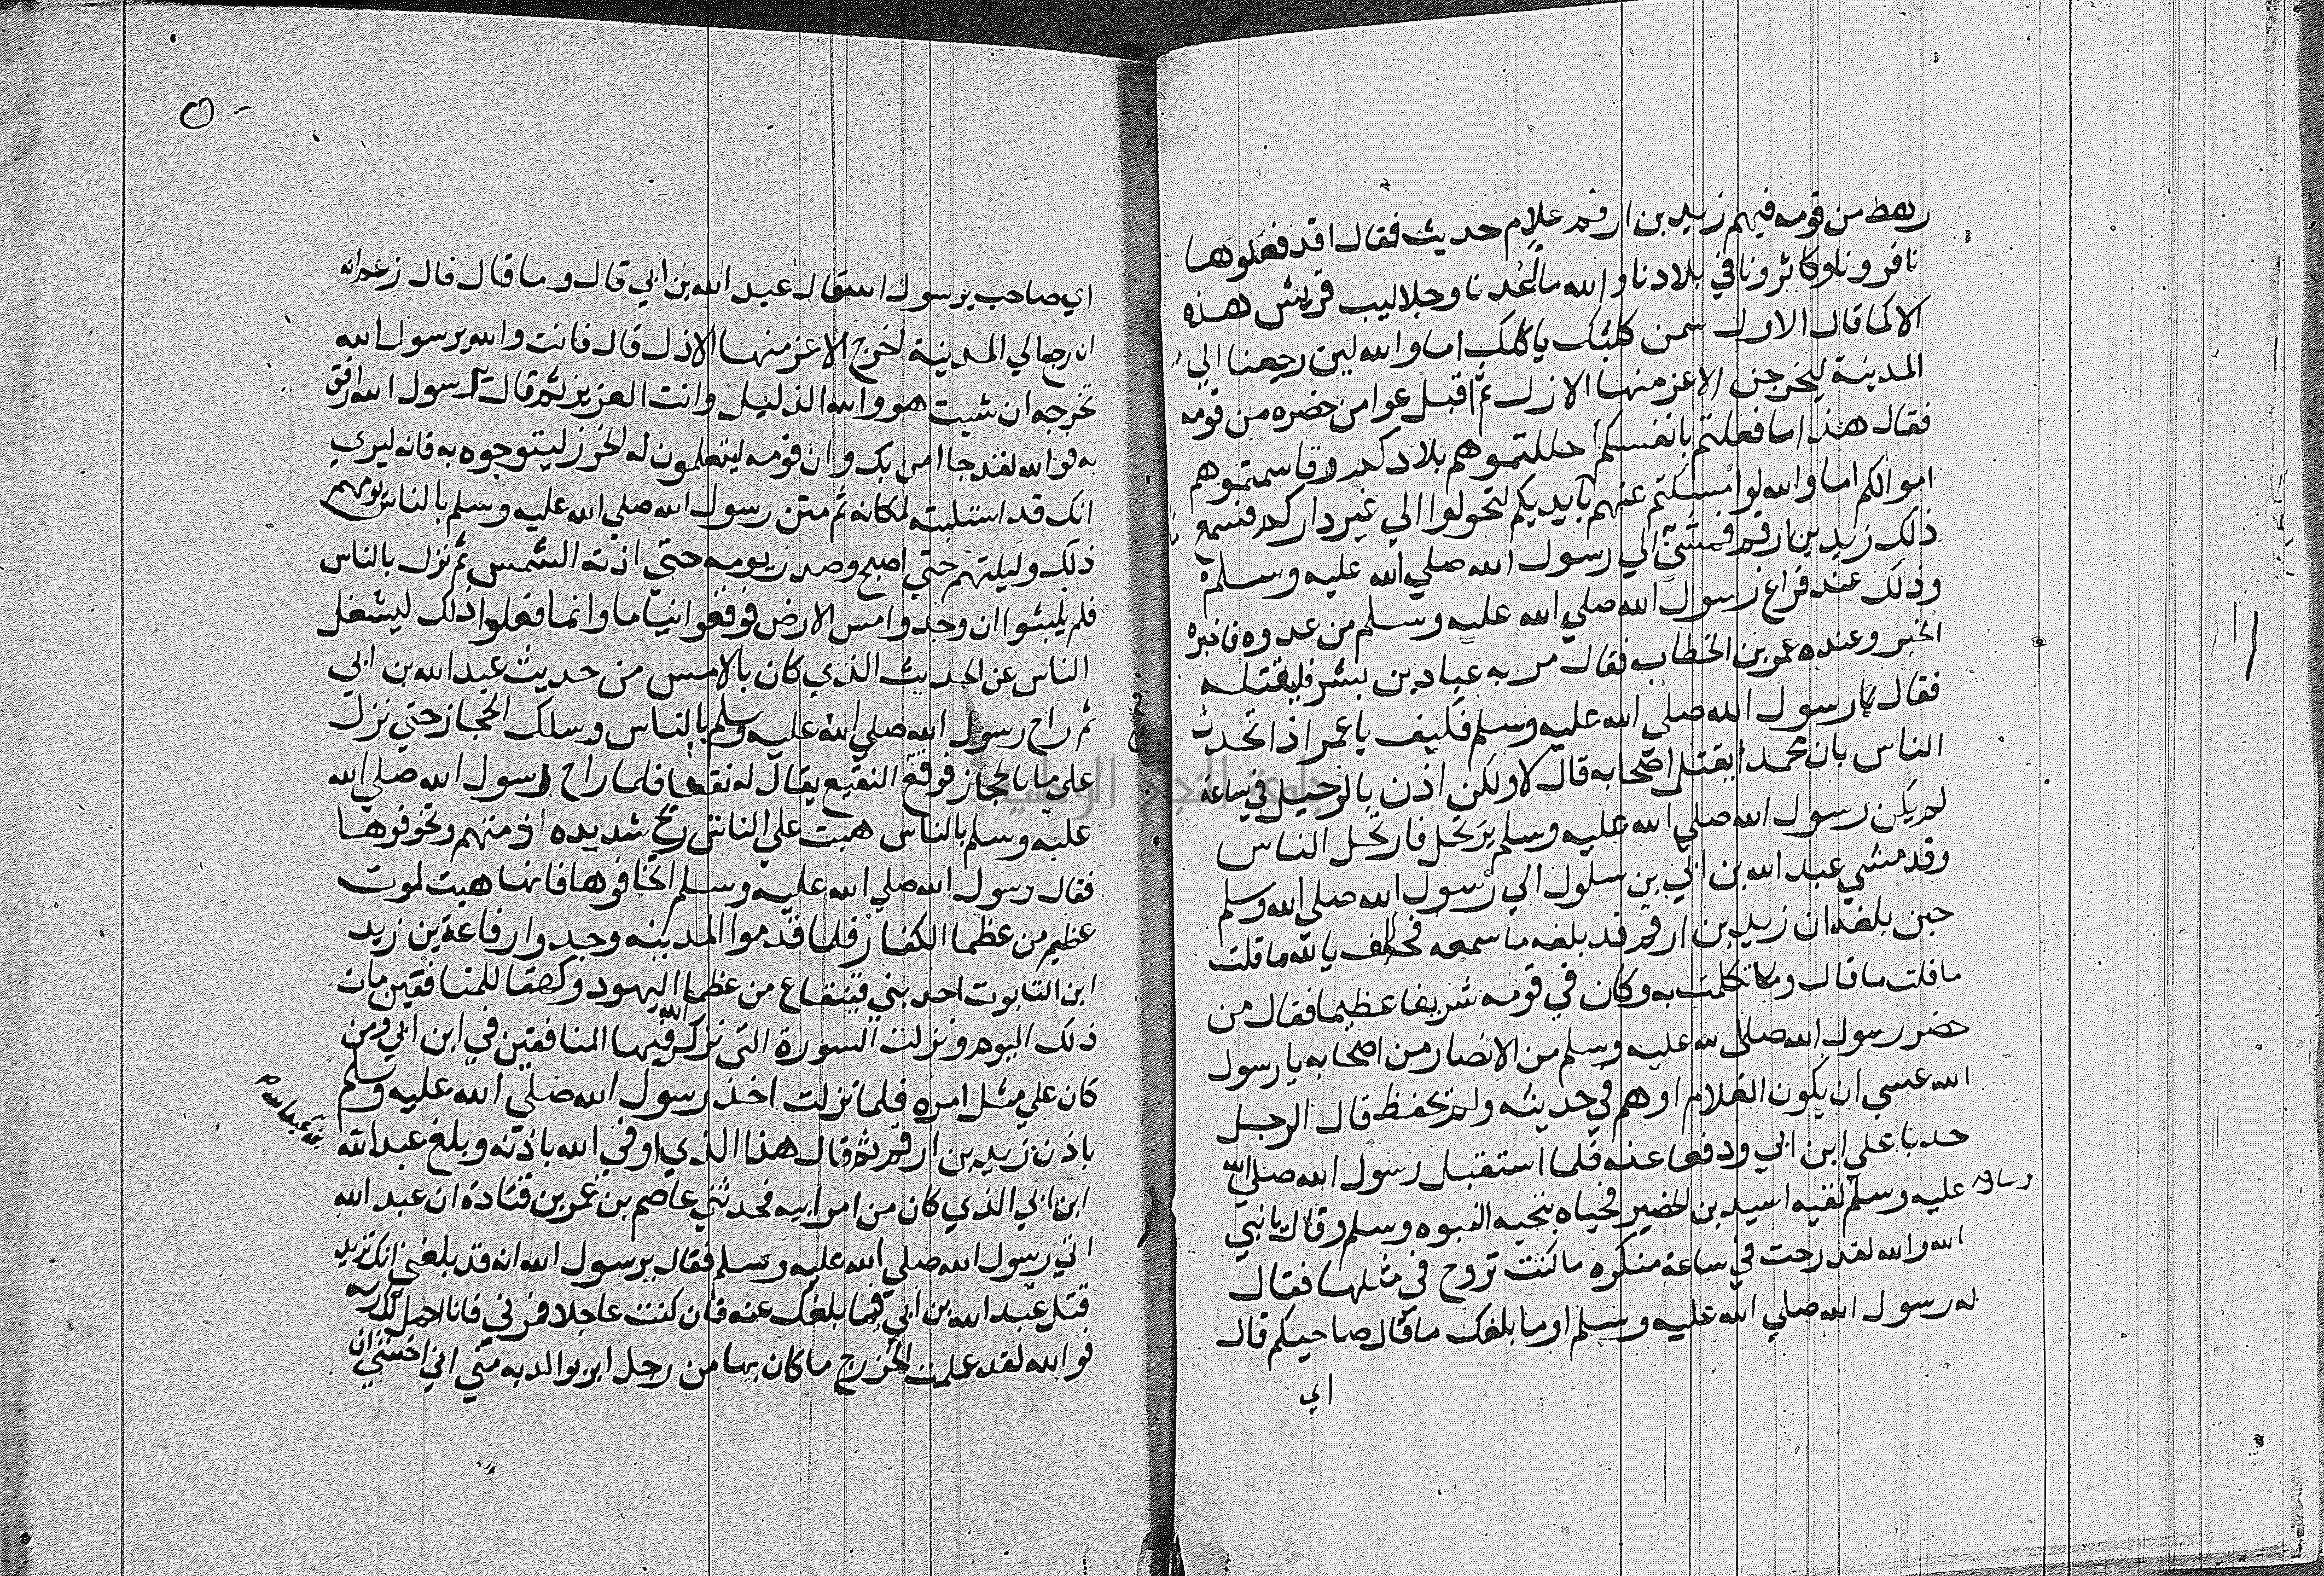 رهط من قومه فيهم زيد بن ارقم غلام حديث فقال اقد فعلوها
نافرونا وكاثرونا في بلادنا والله ما عدنا وجلاليب قريش هذه
الا كما قال الاول سمن كلبك ياكلك اما والله لين رجعنا الي
المدينة ليخرجن الاعز منها الازل ثم اقبل عوا من حضره من قومه
فقال هذا ما فعلتم بانفسكم احللتموهم بلادكم وقاسمتموهم
اموالكم اما والله لو امسكتم عنهم بايديكم لتحولوا الي غير داركم فسمع
ذلك زيد بن ارقم فمشي الي رسول الله صلي الله عليه وسلم
وذلك عند فراغ رسول الله صلي الله عليه وسلم من عدوه فاخبره
الخبر وعنده عمر بن الخطاب فقال مر به عباد بن بشر فليقتله
فقال يا رسول الله صلي الله عليه وسلم فكيف يا عمر اذا تحدث
الناس بان محمدا يقتل اصحابه قال لا ولكن اذن بالرحيل في ساعة
لم يكن رسول الله صلي الله عليه وسلم يرتحل فارتحل الناس
وقد مشي عبد الله بن ابي بن سلول الي رسول الله صلي الله وسلم
حين بلغه ان زيد بن ارقم قد بلغه ما سمعه فحلف بالله ما قلت
ما قلت ما قال وما تكلمت به وكان في قومه شريفا عظيما فقال من
حضر رسول الله صلي الله عليه وسلم من الانصار من اصحابه يا رسول
الله عسي ان يكون الغلام اوهم في حديثه ولم يحفظ قال الرجل
حدبا علي ابن ابي ودفعا عنه فلما استقبل رسول الله صلي الله
عليه وسلم لقيه اسيد بن الحضير فحياه بتحيه النبوه وسلم وقال يا نبي
الله والله لقد رحت في ساعة منكره ما كنت تروح في مثلها فقال
له رسول الله صلي الله عليه وسلم اوما بلغك ما قال صاحبكم قال
اي
اي صاحب يرسول الله قال عبد الله بن ابي قال وما قال قال زعم انه
ان رجع الي المدينة اخرج الاعز منها الاذل قال فانت والله يرسول الله
تخرجه ان شيت هو والله الذليل وانت العزيز ثم قال يرسول الله ارفق
به فوالله لقد جا امن بك وان قومه لينظمون له الخرز ليتوجوه به فانه ليري
انك قد استلبته مكانه ثم متن رسول الله صلي الله عليه وسلم بالناس يومهم
ذلك وليلتهم حتي اصبح وصدر يومه حتي اذته الشمس ثم نزل بالناس
فلم يلبثوا ان وجدوا مس الارض فوقعوا نياما وانما فعلوا ذلك ليشغل
الناس عن الحديث الذي كان بالامس من حديث عبد الله بن ابي
ثم راح رسول الله صلي الله عليه وسلم بالناس وسلك الحجاز حتي نزل
علي ما بالحجاز فوقع النقيع يقال له نقعا فلما راح رسول الله صلي الله
عليه وسلم بالناس هبت علي الناس ريح شديده اذمتهم وتخوفوها
فقال رسول الله صلي الله عليه وسلم لا تخافوها فانها هبت لموت
عظيم من عظما الكفار فلما قدموا المدينه وجدوا رفاعة بن زيد
ابن التابوت احد بني قينقاع من عظما اليهود وكهفا للمنافقين مات
ذلك اليوم ونزلت السورة التي ذكر الله فيها المنافقين في ابن ابي ومن
كان علي مثل امره فلما نزلت اخذ رسول الله صلي الله عليه وسلم
باذن زيد بن ارقم ثم قال هذا الذي اوفي الله باذنه وبلغ عبد الله
ابن ابي الذي كان من امر ابيه فحدثني عاصم بن عمر بن قتادة ان عبد الله
اتي رسول الله صلي الله عليه وسلم فقال يرسول الله انه قد بلغني انك تريد
قتل عبد الله بن ابي فيما بلغك عنه فان كنت فاعلا فمرني فانا احمل لك راسه
فوالله لقد علمت الخزرج ما كان بها من رجل ابر بوالديه مني اني اخشي ان
جامعة النجاح الوطنية